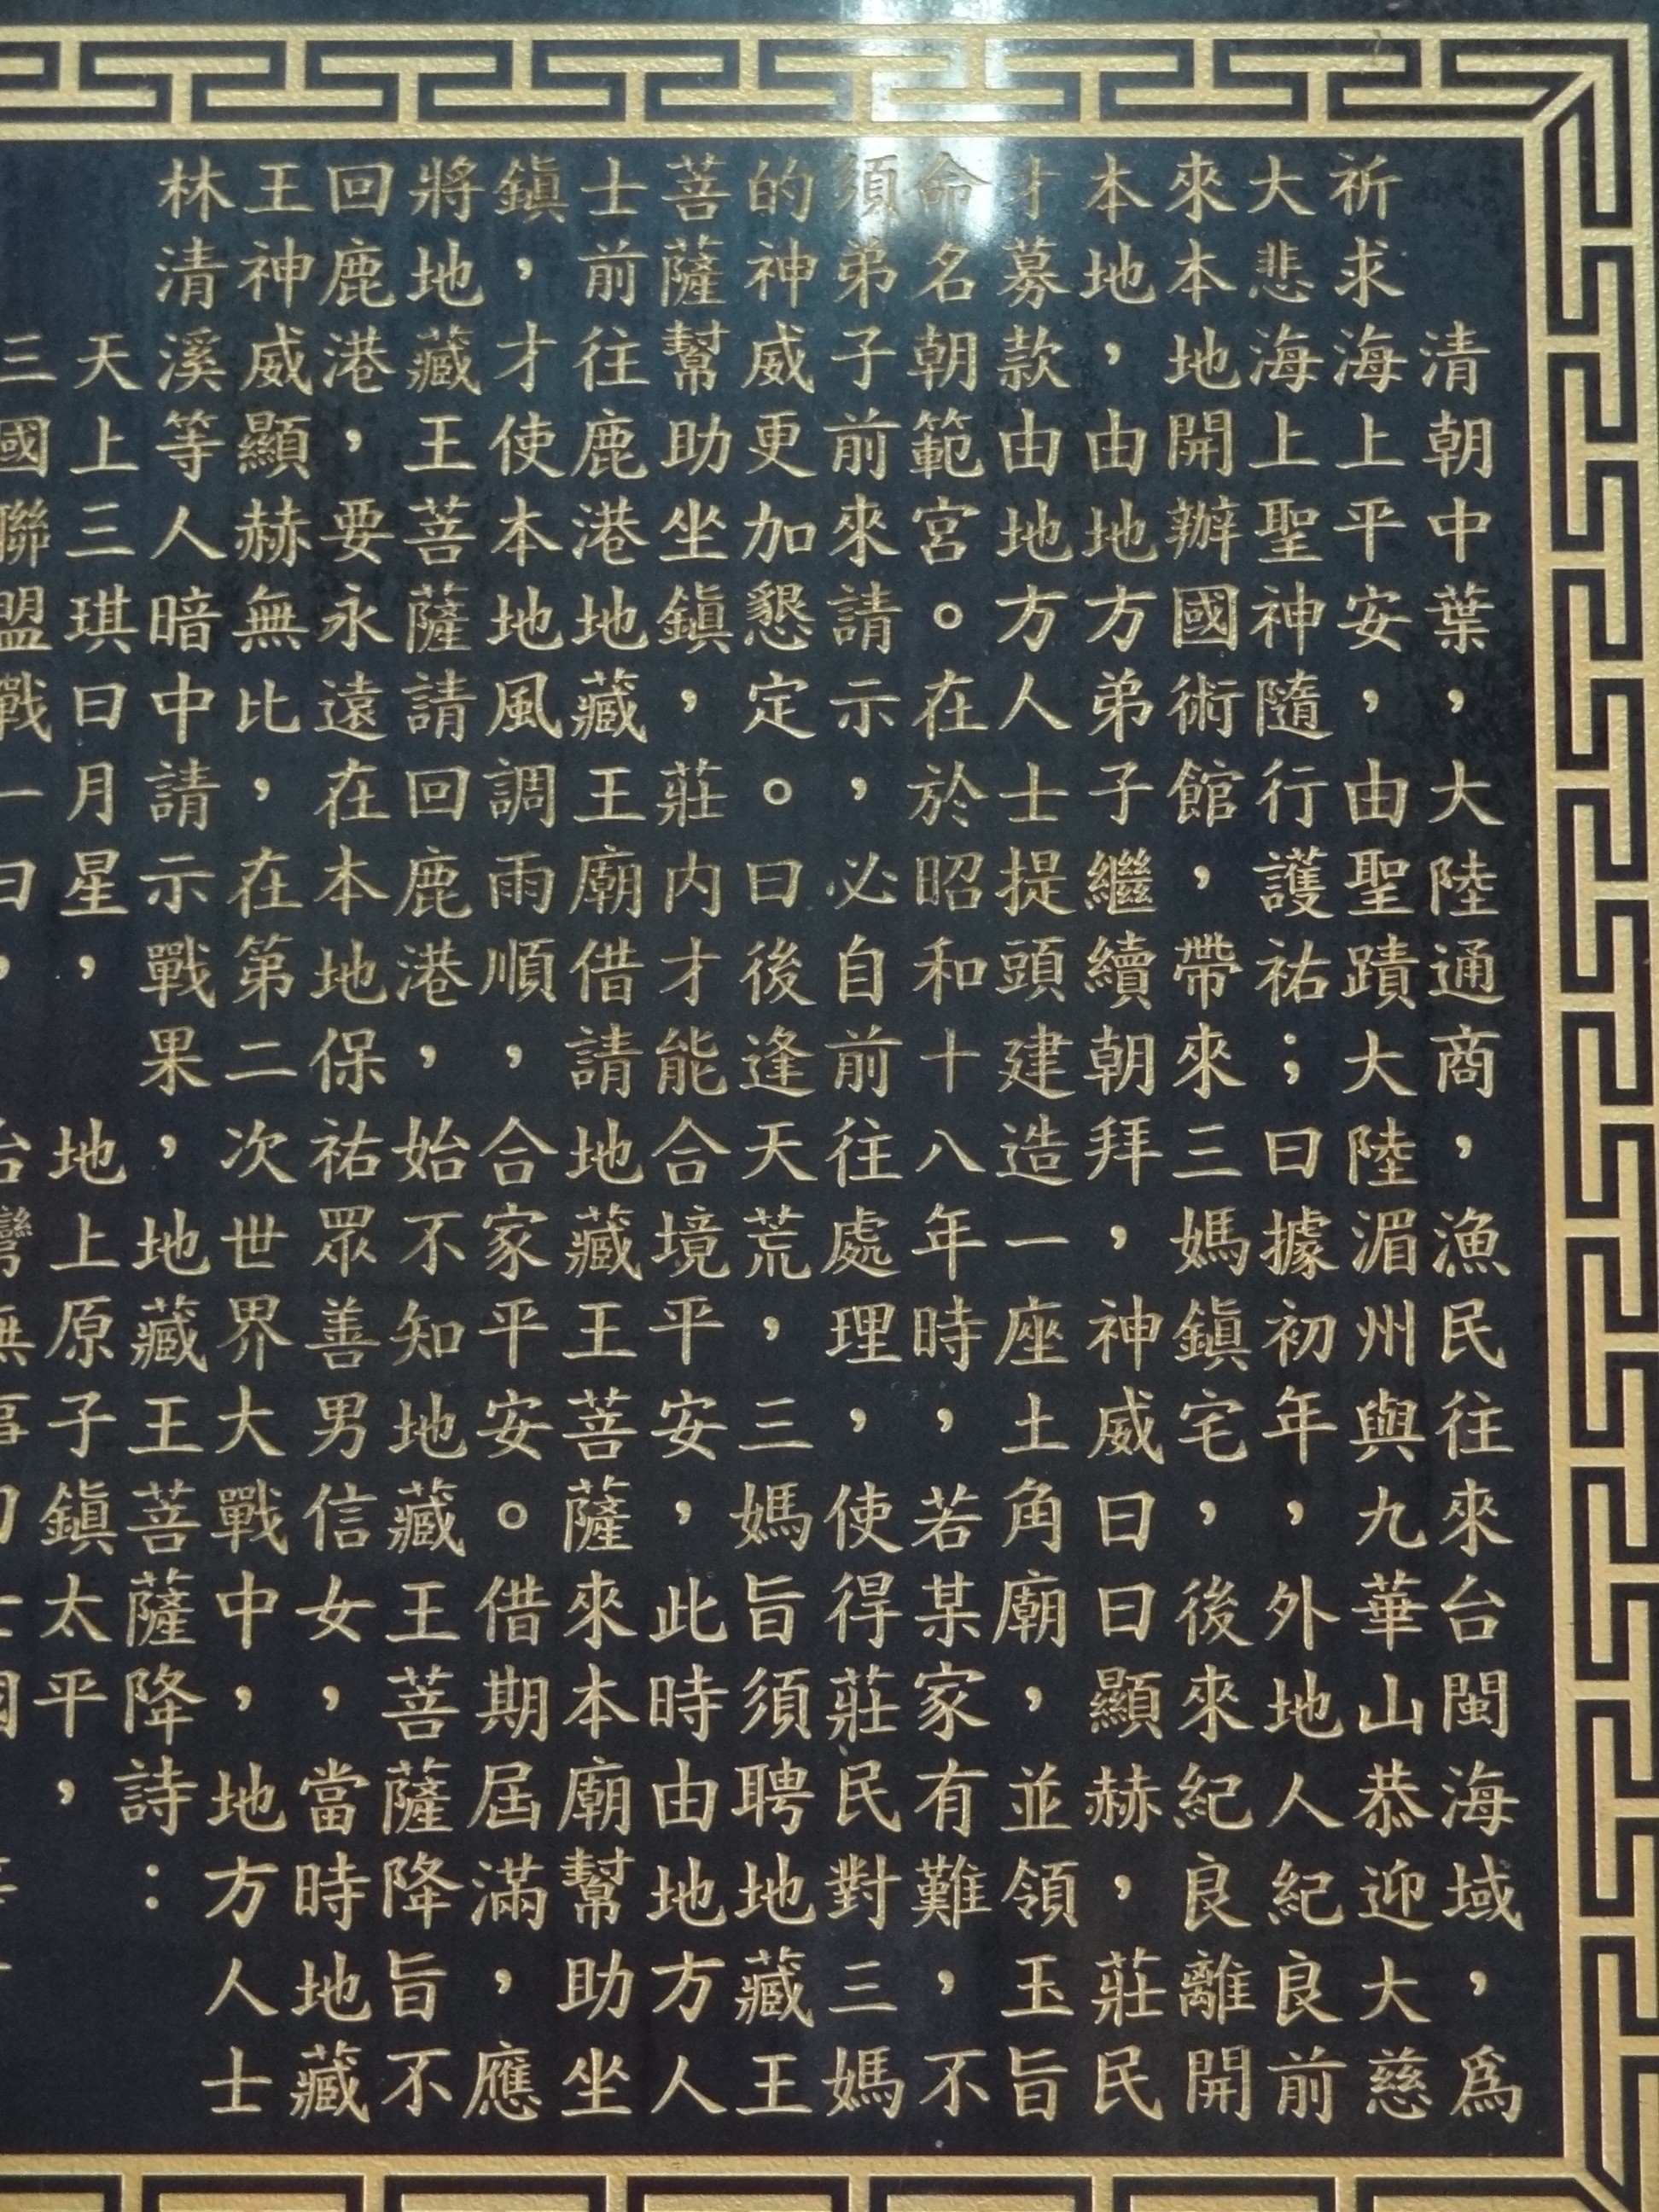 清朝中葉，大陸通商，漁民往來台閩海域，爲
祈求海上平安，由聖蹟大陸湄州與九華山恭迎大慈
大悲海上聖神隨行護祐；曰據初年，外地人紀良前
來本地開辦國術館，帶來三媽鎮宅，後來紀良離開
本地，由地方弟子繼續朝拜，神威曰曰顯赫，莊民
才募款由地方人士提頭建造一座土角廟，並領玉旨
命名朝範宮。在於昭和十八年時，若某家有難，不
須弟子前來請示，必自前往處理，使得莊民對三媽
的神威更加懇定。曰後逢天荒，三媽旨須聘地藏王
菩薩幫助坐鎮，莊內才能合境平安，此時由地方人
士前往鹿港地藏王廟借請地藏王菩薩來本廟幫助坐
鎮，才使本地風調雨順，合家平安。借期屆滿，應
將地藏王菩薩請回鹿港，始不知地藏王菩薩降旨不
回鹿港，要永遠在本地保祐眾善男信女，當時地藏
王神威顯赫無比，在第二次世界大戰中，地方人士
林清溪等人暗中請示戰果，地藏王菩薩降詩：
天上三琪曰月星，地上原子鎮太平，
三國聯盟戰一曰，